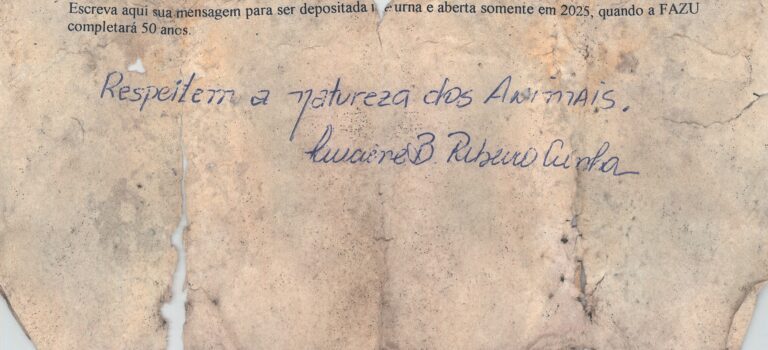 Escreva aqui sua mensagem para ser depositada urna e aberta somente em 2025, quando a FAZU
completará 50 anos.
Respeitem a natureza dos Animais.
B. Ribeiro Cunha